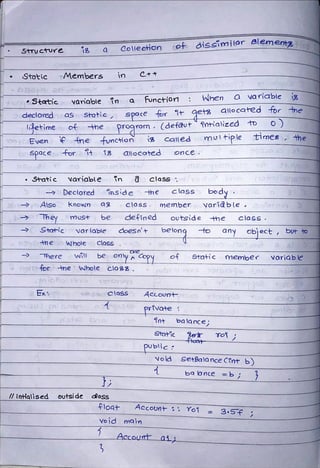 • Structure is a Collection of dissimilar elements
• Static Members in C++
• Static variable in a Function : When a variable is
declared as static, space for it gets allocated for the
lifetime of the program. (default intialized to 0)
Even if the function is called multiple times, the
space for it is allocated once.
• Static variable in a class :
→ Declared inside the class body.
→ Also known as class member variable.
→ They must be defined outside the class.
→ Static variable doesn't belong to any object, but to
the whole class.
→ There will be only one copy of static member variable
for the whole class.
Ex: class Account
{ private :
int balance;
static float roi ;
public :
void setBalance (int b)
{ balance = b ; }
};
// Intialised outside class
float Account :: roi = 3.5f ;
void main
{ Account a1 ;
}